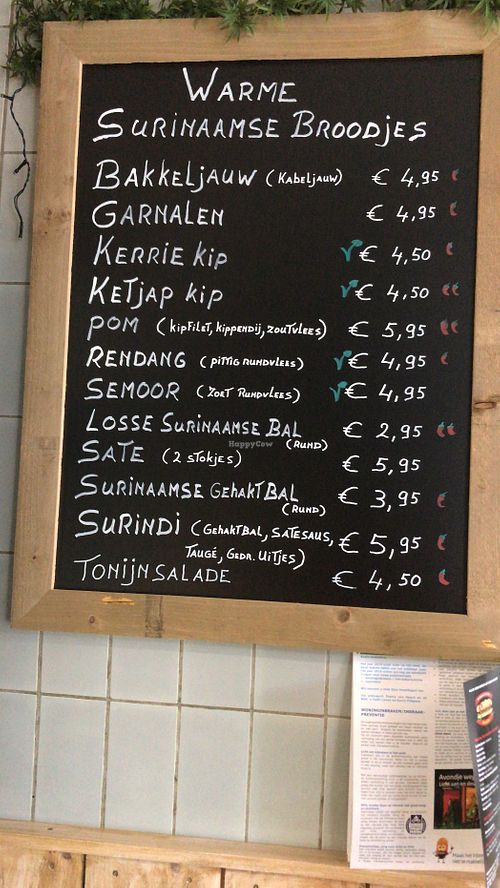 WARME
SURINAAMSE BROODJES
BAKKELJAUW (KABELJAUW) € 4,95
GARNALEN € 4,95
KERRIE KIP € 4,50
KETJAP KIP € 4,50
POM (KIPFILET, KIPPENDIJ, ZOUTVLEES) € 5,95
RENDANG (PITTIG RUNDVLEES) € 4,95
SEMOOR (ZOET RUNDVLEES) € 4,95
LOSSE SURINAAMSE BAL € 2,95
(RUND)
HappyCow
SATE (2 STOKJES) € 5,95
SURINAAMSE GEHAKTBAL € 3,95
(RUND)
SURINDI (GEHAKTBAL, SATESAUS, € 5,95
TAUGÉ, GEDR. UITJES)
TONIJNSALADE € 4,50
WONINGINBRAKEN/INBRAAK-
PREVENTIE
Avondje weg